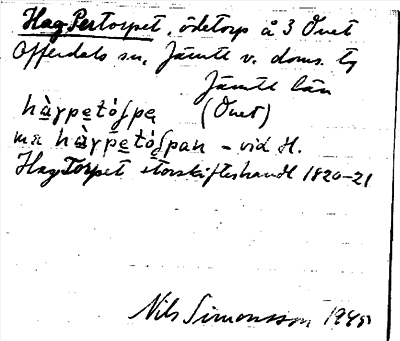 Hag-Pertorpet, ödetorp å 3 Önet
Offerdals sn, Jämtl v. doms. tg
Jämtl län
hàγpetóſpę (Önet)
mn hàγpetóſpan - vid H.
HagTorpet storskifteshandl 1820-21
Nils Simonsson 1945